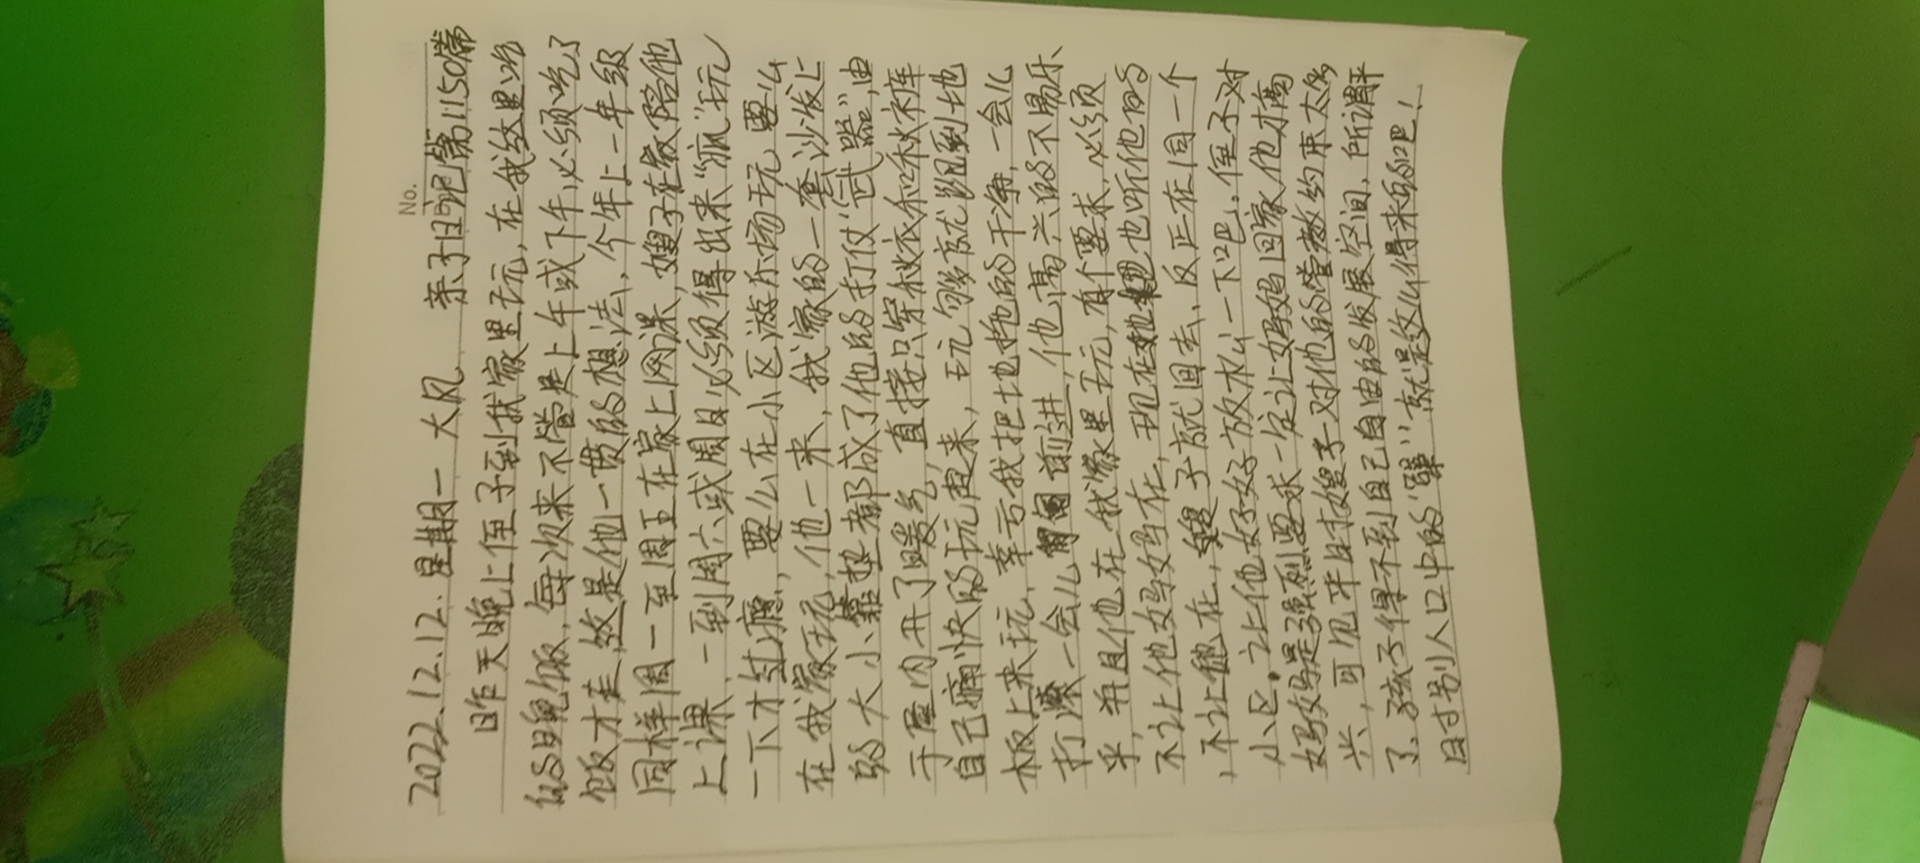 No.
2022.12.12. 星期一 大风 亲子日记第1150篇
昨天晚上侄子到我家里玩,在我这里吃
的晚饭,每次来不管是上午或下午,必须吃了
饭才走,这是他一贯的想法、今年上一年级
同样周一至周五在家上网课,嫂子在家陪他
上课,一到周六或周日,必须得出来“疯”玩
一下才过瘾,要么在小区游乐场玩,要么
在我家玩,他一来,我家的一套沙发上
的大小靠垫都成了他的打仗“武器”,由
于屋内开了暖气,直接只穿秋衣和秋裤
自己痛快的玩起来,玩够就躺到地
板上来玩,幸亏我把地拖的干净,一会儿
打滚一会儿匍匐前进,他高兴的不易乐
乎,并且他在我家里玩,有个要求,必须
不让他妈妈在,现在她也听他的
,不让她在,嫂子就回去,反正在同一个
小区。让他好好放松一下吧。侄子对
妈妈是强烈要求一定让妈妈回家他才高
兴,可见平时嫂子对他的管教约束太多
了,孩子得不到自己自由的发展空间,所谓平
日对别人口中的“犟”就是这么得来的吧!